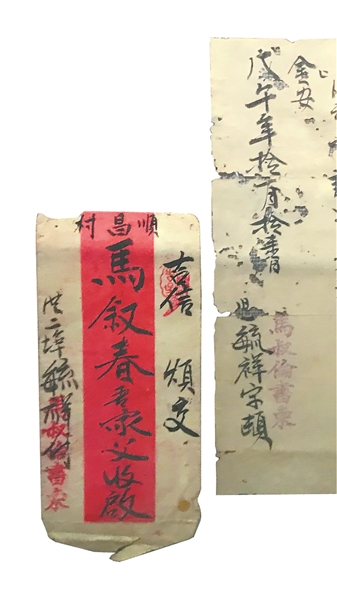 金安
戊午年拾一月拾柒日
毓祥字頓
馬叔倫書柬
順昌村
吉信 煩交
馬叙春家父收啟
二埠毓祥
叔倫書柬